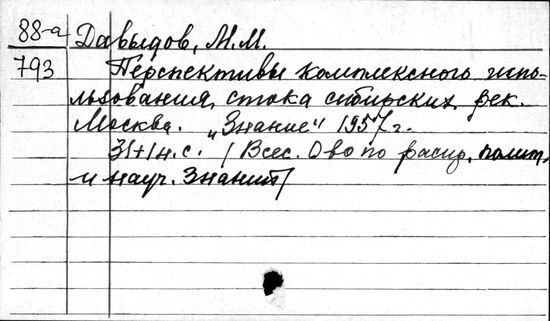 88-а Давыдов, М.М.
793 Перспективы комплексного испо-
льзования стока сибирских рек.
Москва. „Знание“ 1957 г.
31+1 н.с. (Всес. О-во по распр. полит.
и науч. Знаний)